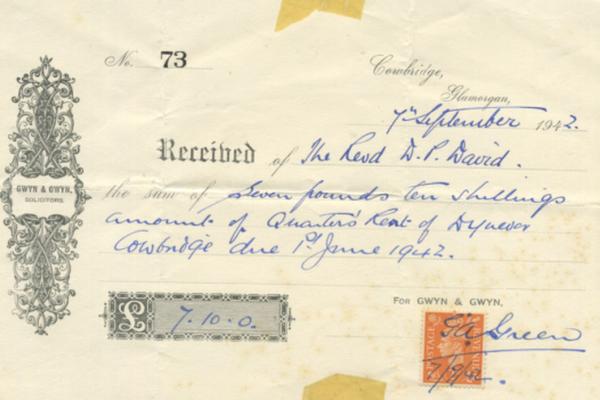 No. 73
Cowbridge,
Glamorgan,
7th September 1942.
GWYN & GWYN,
SOLICITORS.
Received of The Revd D. P. David.
the sum of Seven pounds ten shillings
amount of Quarter's Rent of Dynever
Cowbridge due 1st June 1942.
FOR GWYN & GWYN,
£ 7.10.0.
POSTAGE
G.A. Green
7/9/42.